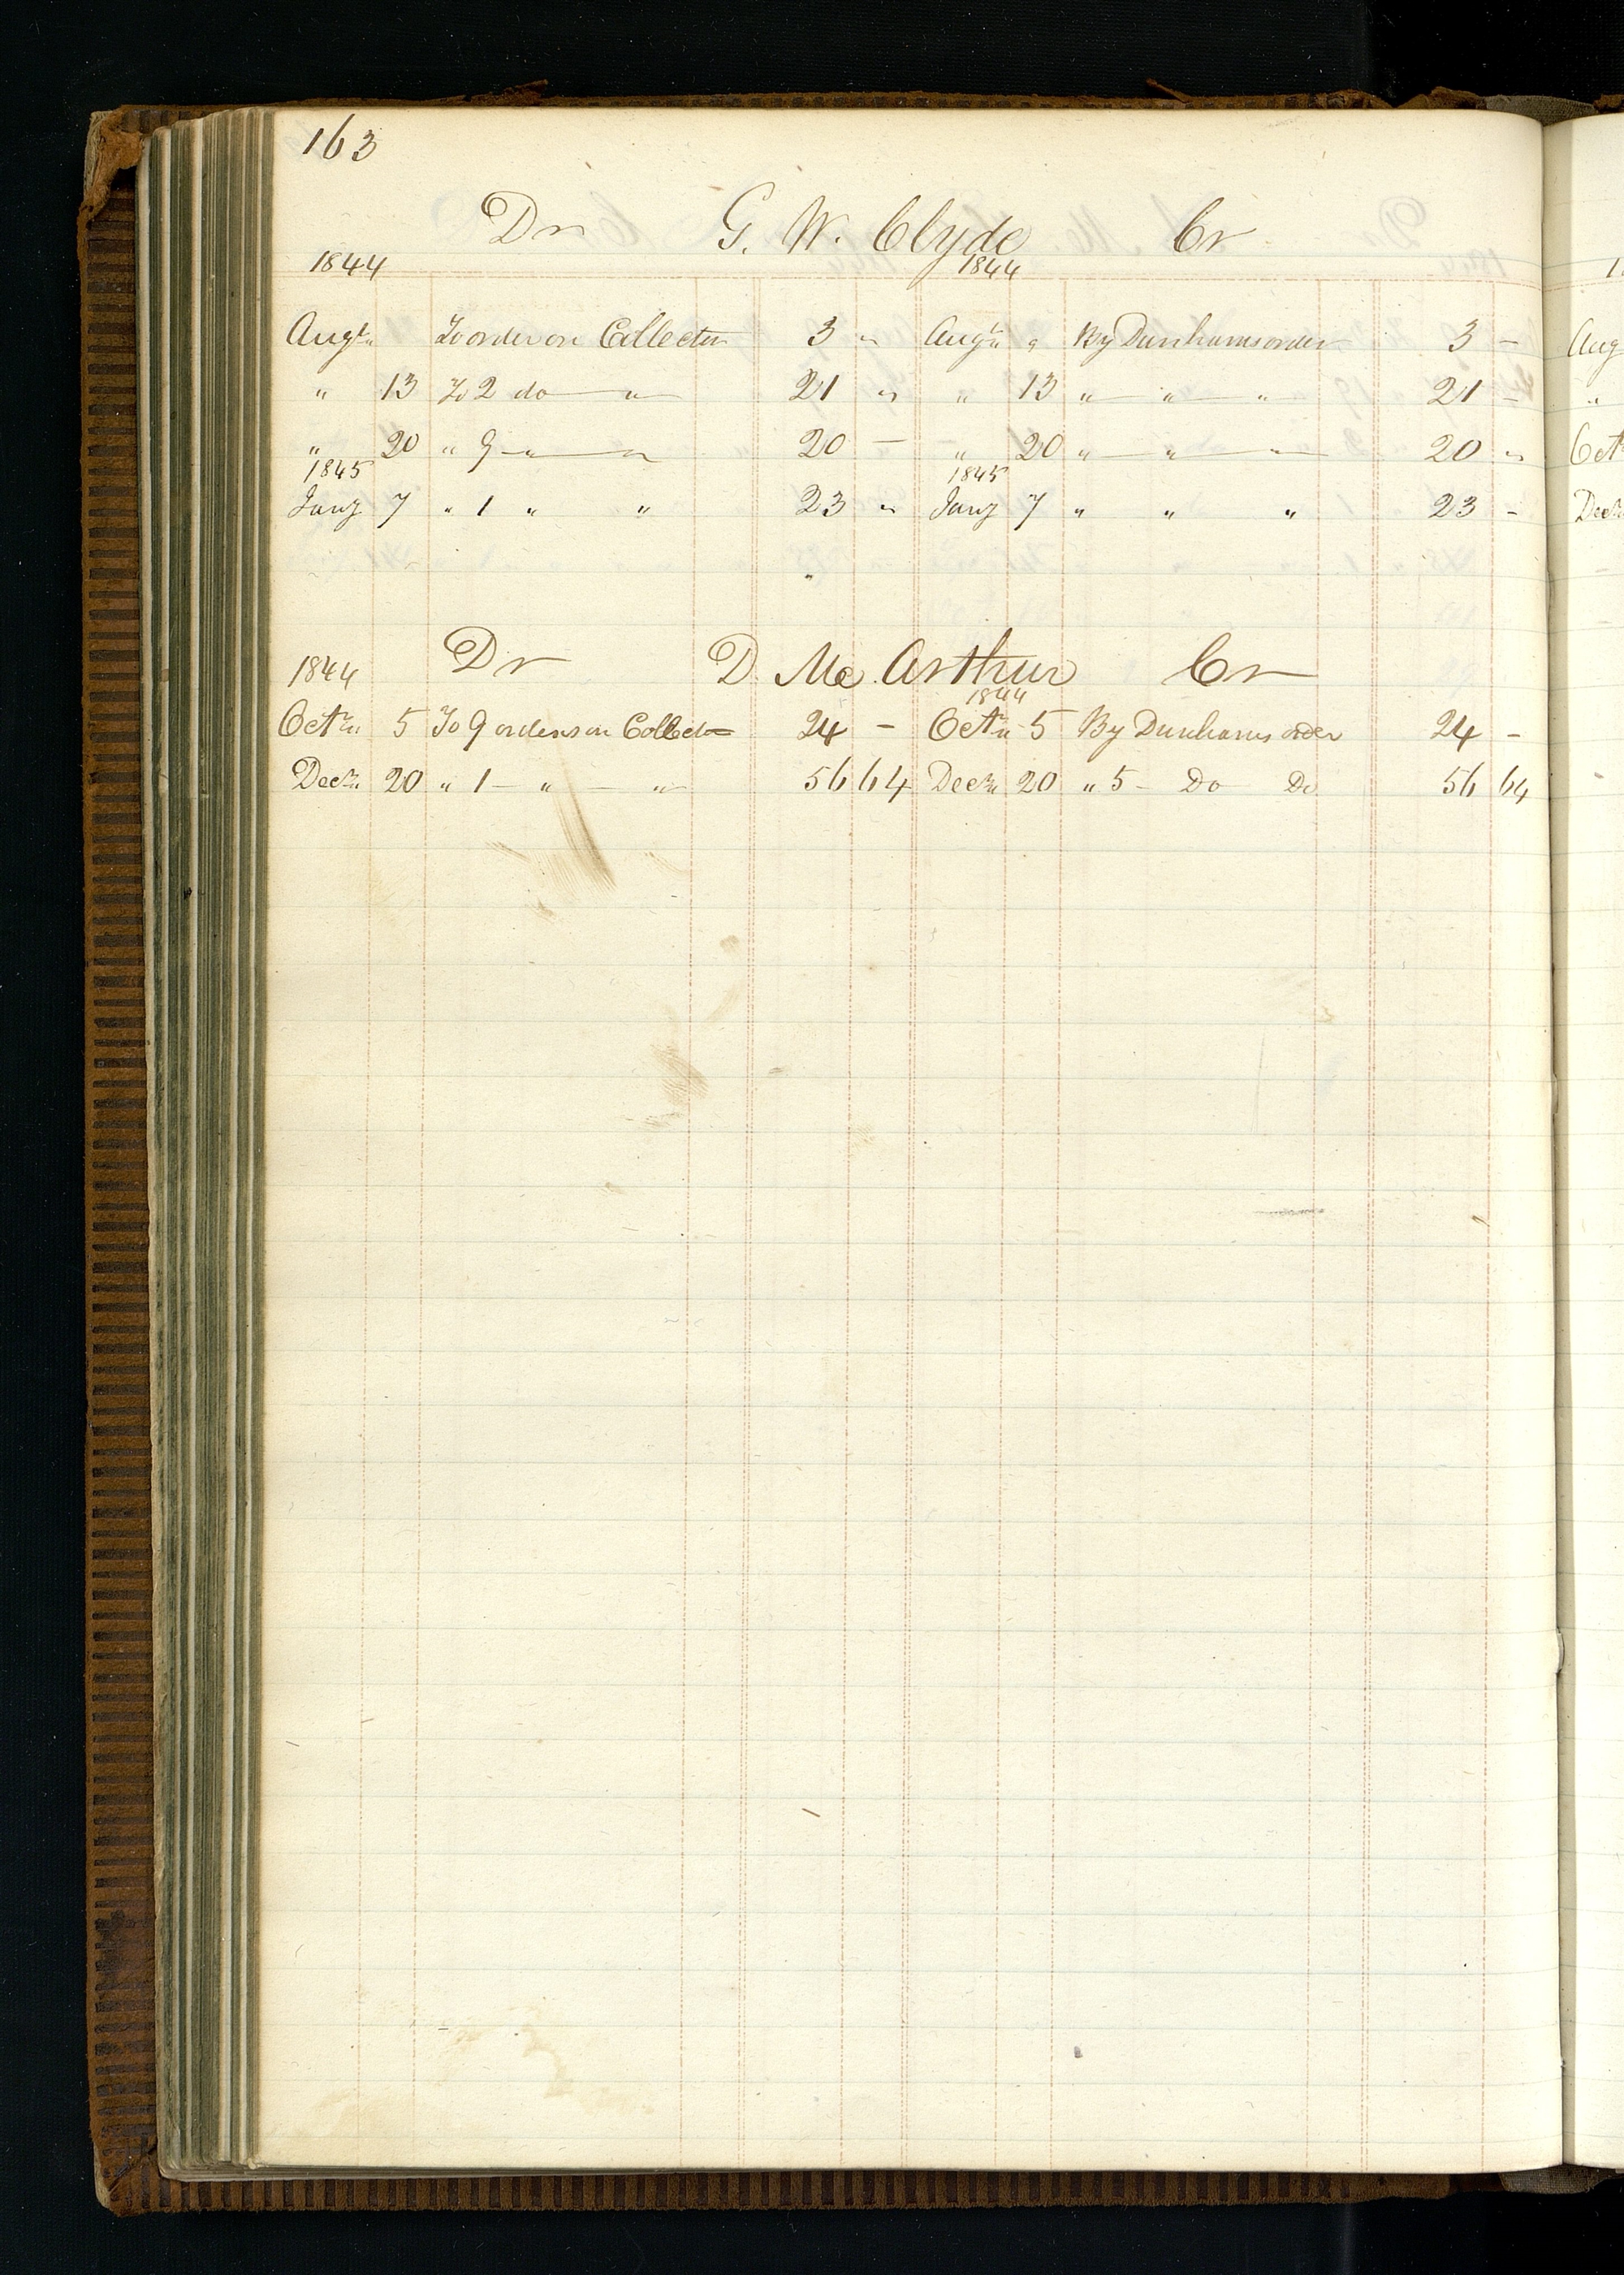 163
Dr G. W. Clyde Cr
1844 1844
Augt " To order on Collector 3 " Augt " By Dunhams order 3 -
" 13 To 2 do " 21 " " 13 " " " 21 -
" 20 " 9 " " 20 - " 20 " " " 20 "
1845 1845
Jany 7 " 1 " " 23 " Jany 7 " " " 23 -
1844 Dr D. Mc Arthur Cr
1844
Octr 5 To 9 orders on Collector 24 - Octr 5 By Dunhams order 24 -
Decr 20 " 1 - " - " 56 64 Decr 20 " 5 - Do Do 56 64
Aug
"
Oct
Decr